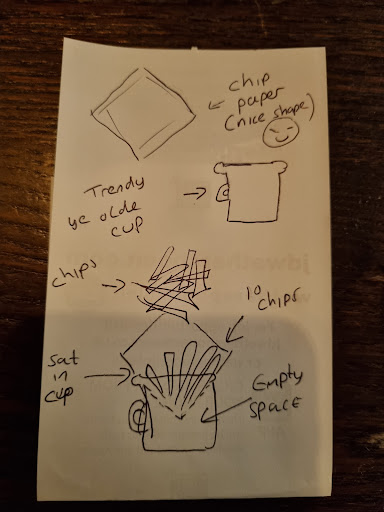 chip
paper
(nice shape)
Trendy
ye olde
cup
chips
10 chips
Sat
in
cup
Empty
space